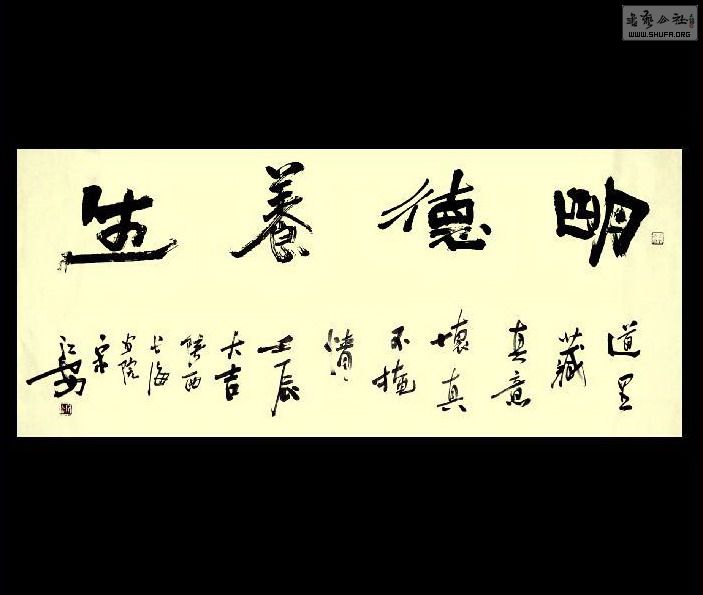 書藝公社
WWW.SHUFA.ORG
明德養生
道里
藏
真意
懷真
不掩
情
壬辰
大吉
陝西
長海
畫院